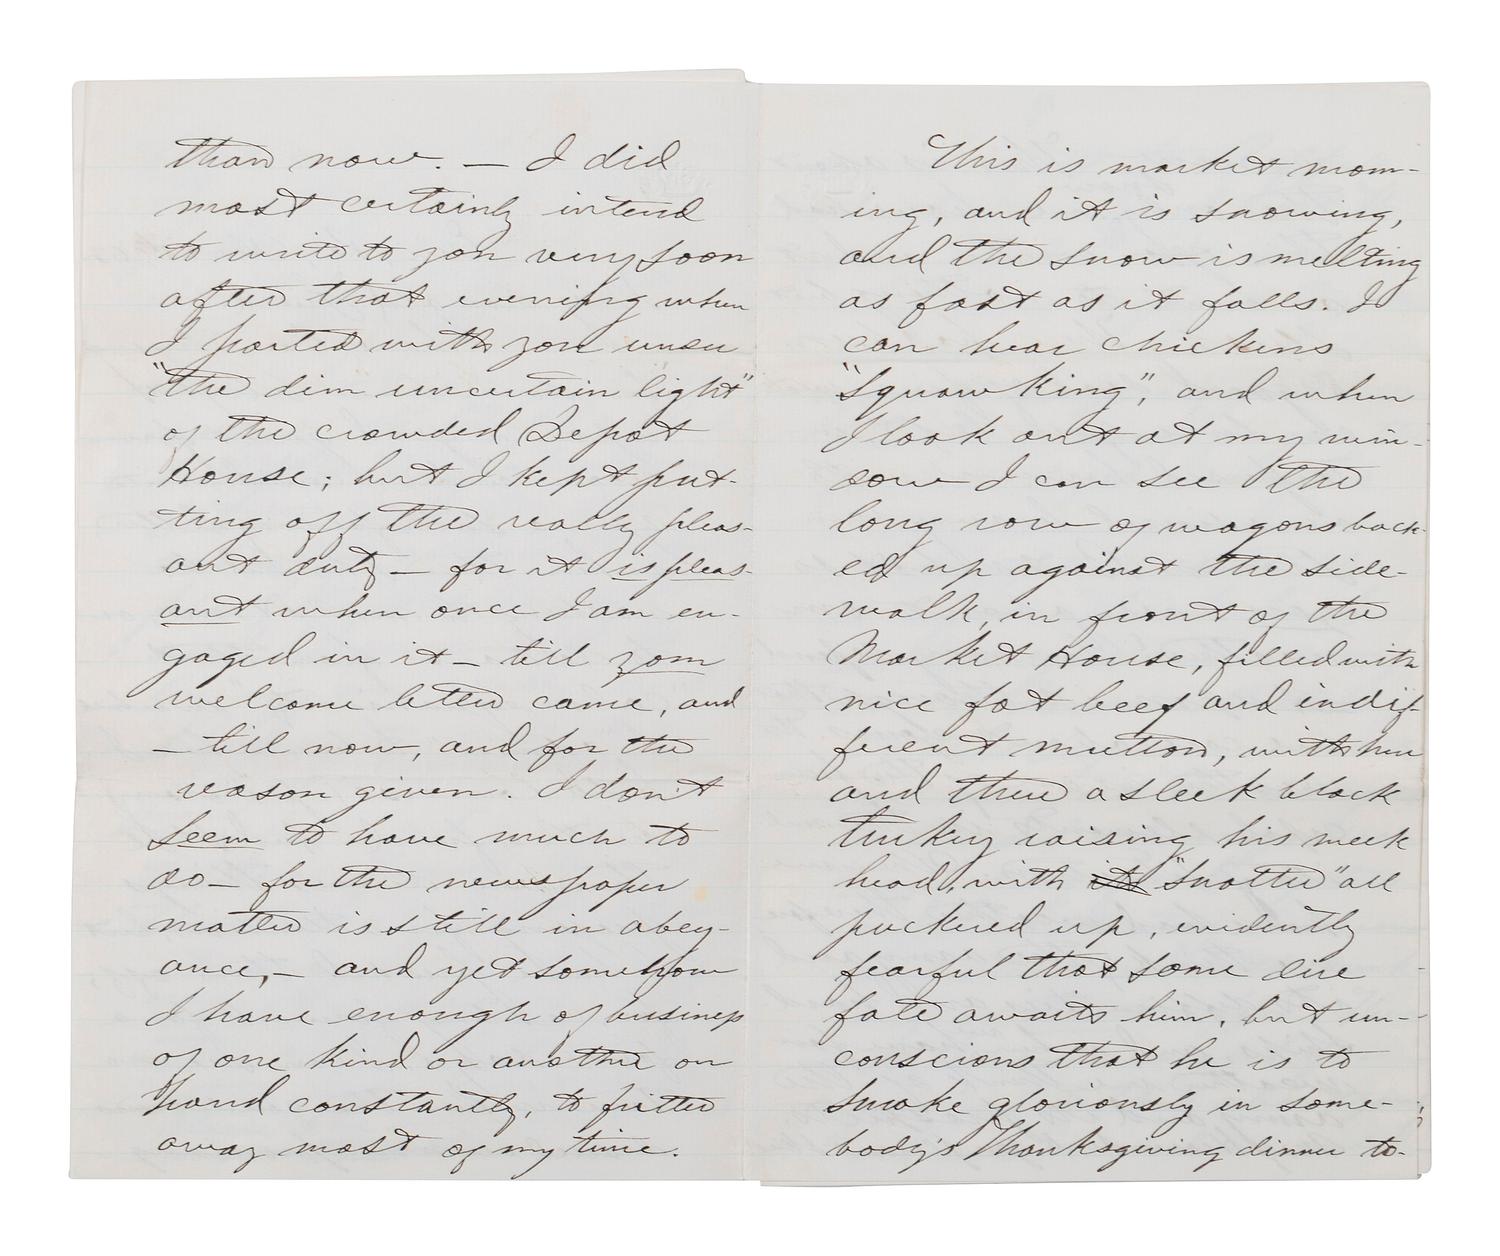 than now. — I did
most certainly intend
to write to you very soon
after that evening when
I parted with you under
"the dim uncertain light"
of the crowded Depot
House; but I kept put-
ting off the really pleas-
ant duty — for it is pleas-
ant when once I am en-
gaged in it — till your
welcome letter came, and
— till now, and for the
reason given. I don't
seem to have much to
do — for the newspaper
matter is still in abey-
ance, — and yet somehow
I have enough of business
of one kind or another on
hand constantly, to fritter
away most of my time.
This is market morn-
ing, and it is snowing,
and the snow is melting
as fast as it falls. I
can hear chickens
"squawking", and when
I look out at my win-
dow I can see the
long row of wagons back-
ed up against the side-
walk, in front of the
Market House, filled with
nice fat beef and indif-
ferent mutton, with here
and there a sleek black
turkey raising his meek
head, with its "snotter" all
puckered up, evidently
fearful that some dire
fate awaits him, but un-
conscious that he is to
smoke gloriously in some-
body's Thanksgiving dinner to-